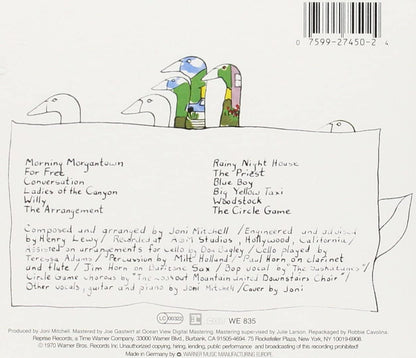 0 7599-27450-2 4
Morning Morgantown
For Free
Conversation
Ladies of the Canyon
Willy
The Arrangement
Rainy Night House
The Priest
Blue Boy
Big Yellow Taxi
Woodstock
The Circle Game
Composed and arranged by Joni Mitchell / Engineered and advised
by Henry Lewy / Recorded at A&M Studios, Hollywood, California /
Assisted on arrangements for cello by Don Bagley / Cello played by
Teressa Adams / Percussion by Milt Holland / Paul Horn on clarinet
and flute / Jim Horn on Baritone Sax / Bop vocal by "The Saskatunes"/
Circle Game Chorus by "The Lookout Mountain United Downstairs Choir"/
Other vocals, guitar and piano by Joni Mitchell / Cover by Joni
LC 00322
WE 835
Produced by Joni Mitchell. Mastered by Joe Gastwirt at Ocean View Digital Mastering. Mastering supervised by Julie Larson. Repackaged by Robbie Cavolina.
Reprise Records, a Time Warner Company, 3300 Warner Blvd., Burbank, CA 91505-4694. 75 Rockefeller Plaza, New York, NY 10019-6908.
© 1970 Warner Bros. Records Inc. Unauthorized copying, hiring, lending, public performance and broadcasting of this recording prohibited.
Made in Germany by WARNER MUSIC MANUFACTURING EUROPE.